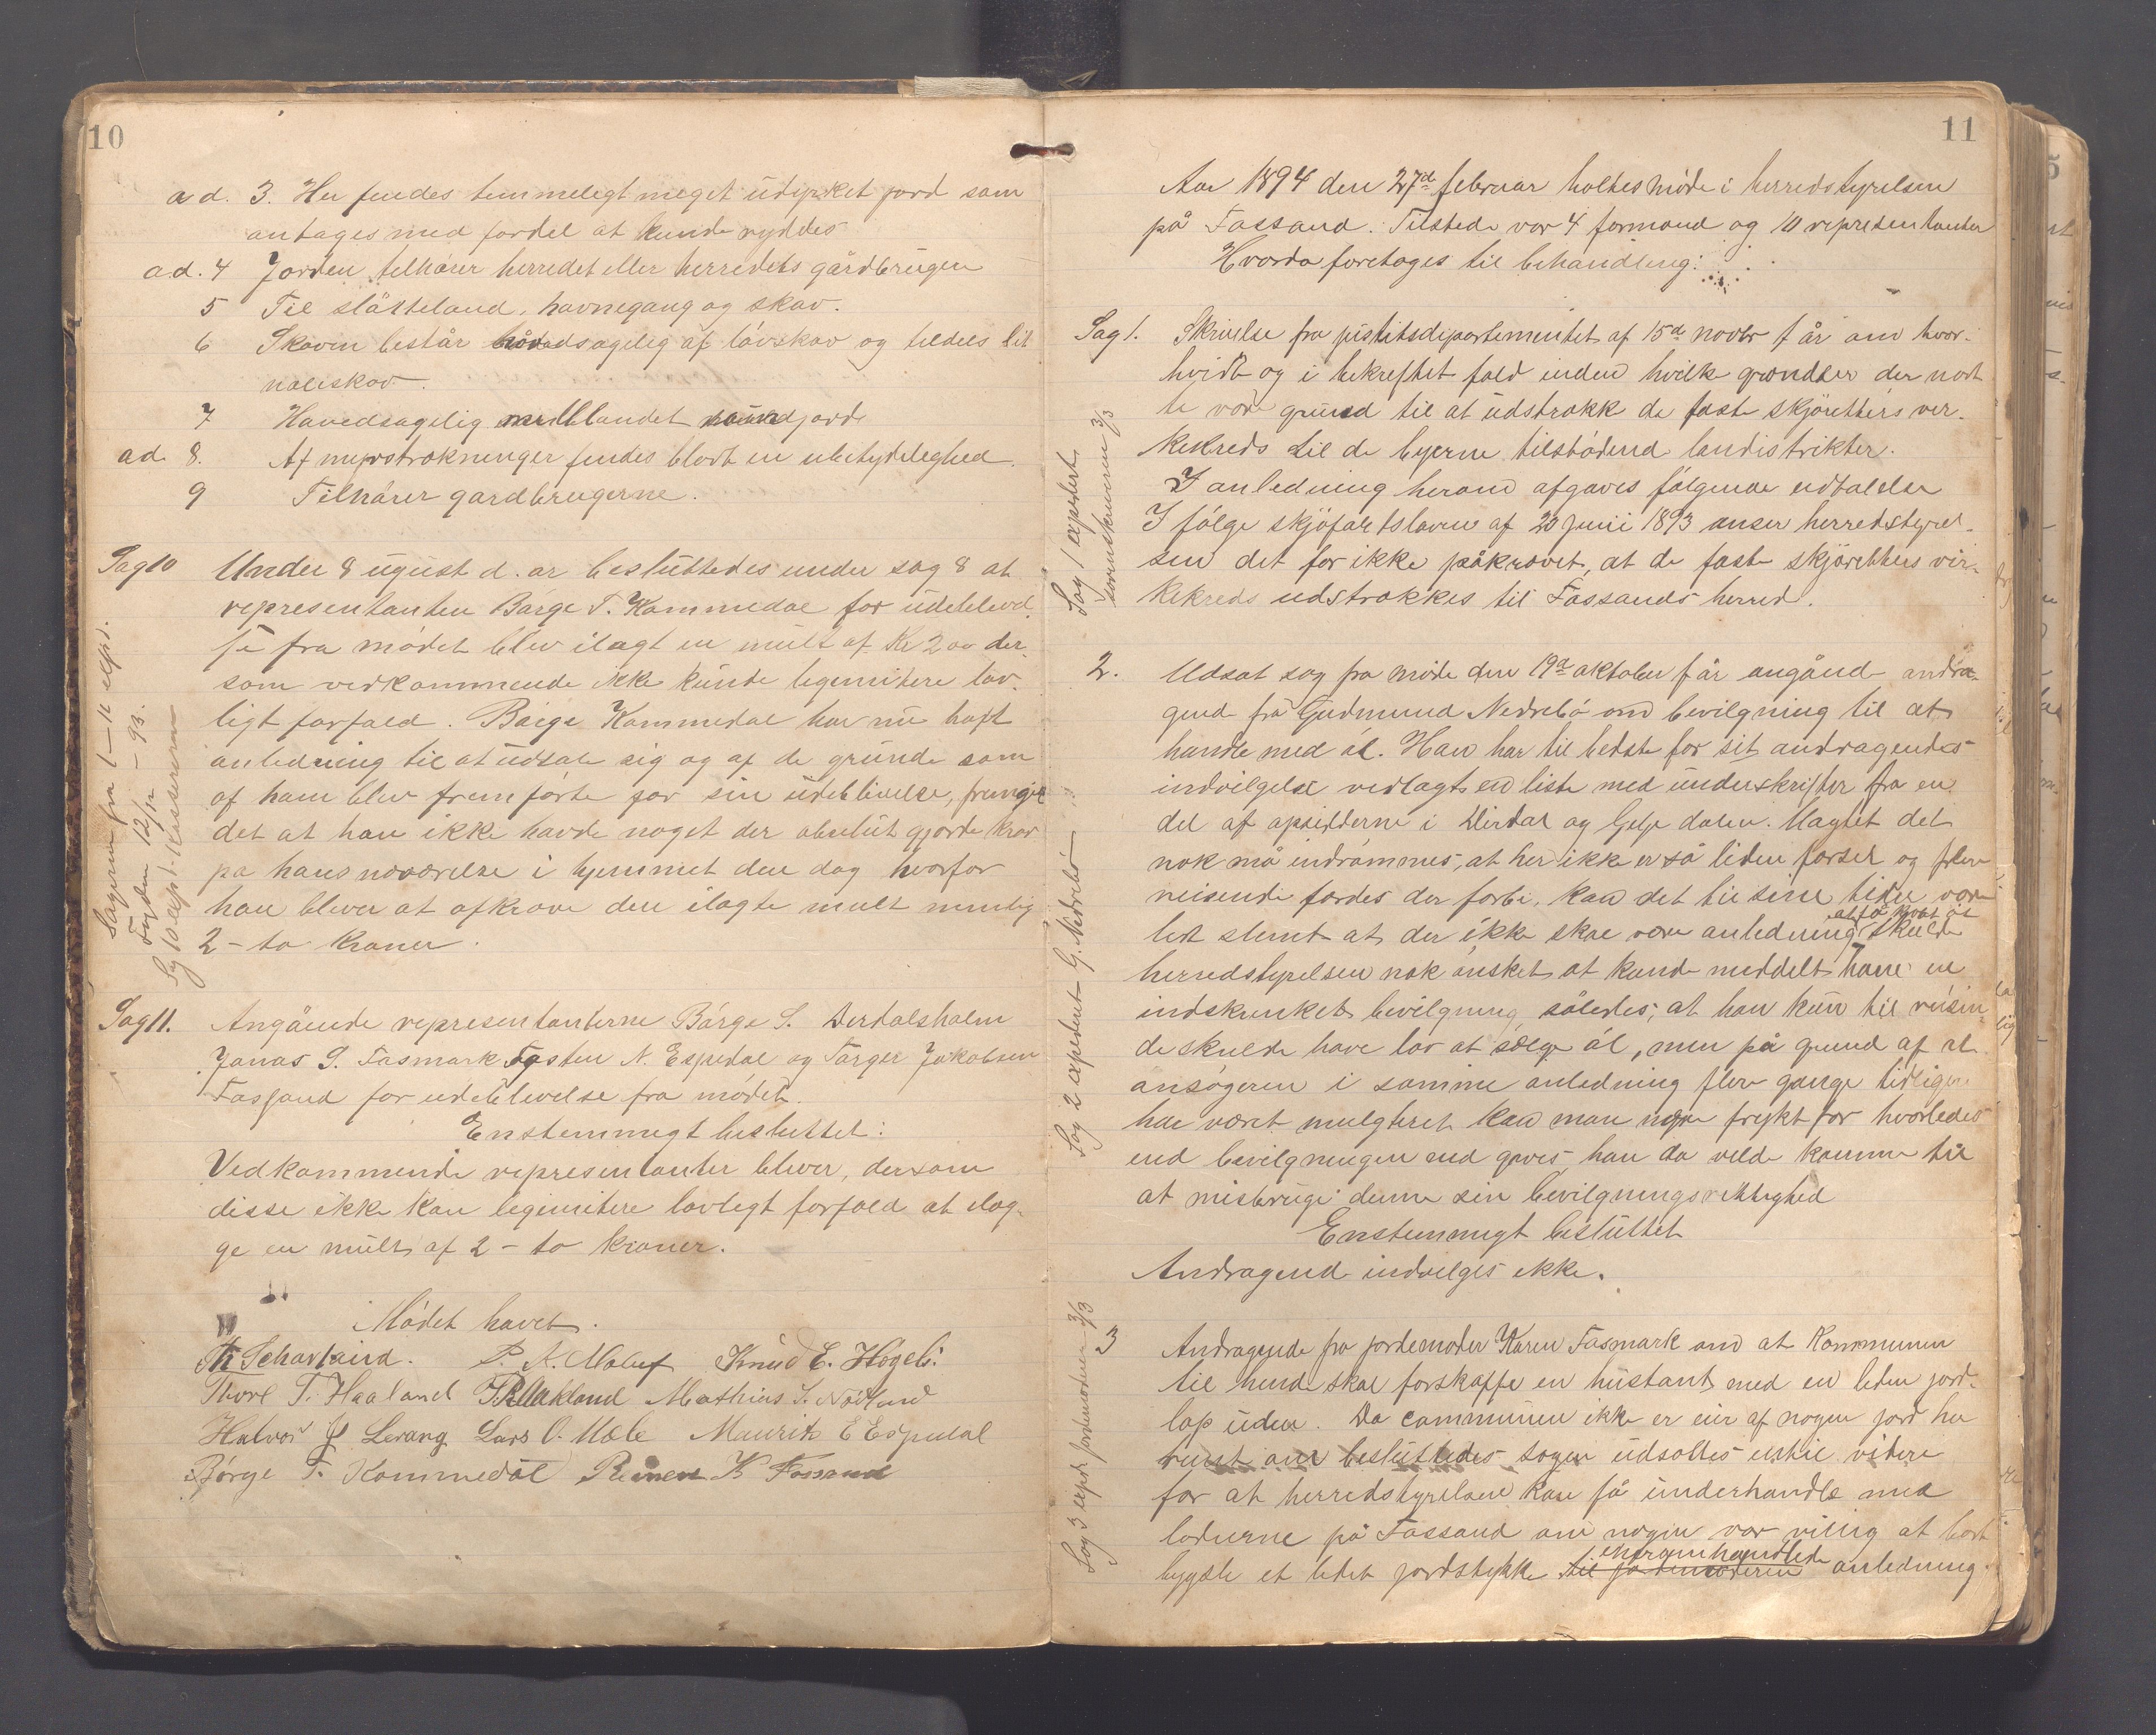 10
ad. 3. Her findes temmeligt meget udyrket jord som
antages med fordel at kunde ryddes
ad. 4 Jorden tilhører herredet eller herredets gårdbrugere
5 Til slåtteland, havnegang og skov.
6 Skoven består hovedsagelig af løvskov og tildels lit
naleskov.
7 Hovedsagelig jord
ad 8. Af myrstrækninger findes blodt en ubetydelighed.
9 Tilhører gardbrugerne.
Sag 10 Under 8 ugust d. ar besluttedes under sag 8 at
representanten Børge T. Kommedal for udeblevel
se fra mødet blev ilagt en mult af Kr 2 00 der-
som vedkommende ikke kunde legemitere lov-
ligt forfald. Børge Kommedal har nu haft
anledning til at udtale sig og af de grunde som
af ham blev fremførte for sin udeblivelse, fremgik
det at han ikke havde noget der absolut gjorde krav
pa hans nærværelse i hjemmet den dag hvorfor
han bliver at afkræve den ilagte mult nemlig
2 - to kroner.
Sagerne fra 1 - 11 expd.
Fogden 12/12 - 93.
Sag 10 expt. Kassereren
Sag 11. Angående representanterne Børge S. Derdalsholm
Jonas S. Fasmark Tosten N. Espedal og Tørger Jakobsen
Fossand for udeblevelse fra mødet.
Enstemmegt besluttet:
Vedkommende representanter blever, dersom
disse ikke kan legimitere lovlegt forfald at ilæg-
ge en mult af 2 - to kroner.
Mødet hævet.
Th Schavland. P. A. Moluf Knud E. Høgeli
Thore T. Haaland T. R. Aakland Mathias S. Nødland
Halvor J Levang Lars O. Mæle Maurits E Espedal
Børge T. Kommedal Reinert K Fossand
11
Aar 1894 den 27de februar holtes møde i herredstyrelsen
på Fossand. Tilstede var 4 formænd og 10 representanter
Hvorda foretages til behandling:
Sag 1. Skrivelse fra justitsdepartementet af 15de novbr f år om hvor-
hvidt og i bekreftet fald inden hvilke grændser der mat-
te være grund til at udstrække de faste skjøretters ver-
kekreds til de byerne tilstødende landistrikter.
I anledning herom afgaves følgende udtalelse
I følge skjøfartsloven af 20 Juni 1893 anser herredstyrel-
sen det for ikke påkrævet, at de faste skjøretters vir-
kekreds udstrækkes til Fossands herred.
Sag 1 expedert
sorenskriveren 3/3
2. Udsat sag fra møde den 19de oktober f år angånde andra-
gend frå Gudmund Nedrebø om bevilgning til at
handle med øl. Han har til bedste for sit andragendes
indvilgelse vedlagt en liste med underskrifter fra en
del af opsidderne i Dirdal og Gilje dalen. Uagtet det
nok må indrømmes, at her ikke er så liden færsel og flere
reisende færdes der forbi, kan det til sine tider være
lidt slemt at der ikke skal være anledning at få kjøbt øl skulde
herredstyrelsen nok ønsket at kunde meddelt ham en
indskrænket bevilgning således, at han kun til reisen-
de skulde have lov at sælge øl, men på grund af at
ansøgeren i samme anledning flere gange tidligere
har været mulgteret kan man nære frykt for hvorledes
end bevilgningen end gives han da vilde komme til
at misbruge denne sin bevilgningsrettighed
Enstemmigt besluttet
Andragend indvilges ikke.
Sag 2 expedert G. Nedrebø
3 Andragende fra jordemoder Karen Fasmark om at Kommunen
til hende skal forskaffe en hustant med en liden jord-
lap uden. Da communen ikke er eier af nogen jord her
rundt om besluttedes sagen udsattes indtil videre
for at herredstyrelsen kan få underhandle med
lodeierne på Fossand om nogen var villig at bort
bygsle et lidet jordstykke til jordemoderen omhandlede anledning.
Sag 3 expd. jordmoderen 3/3